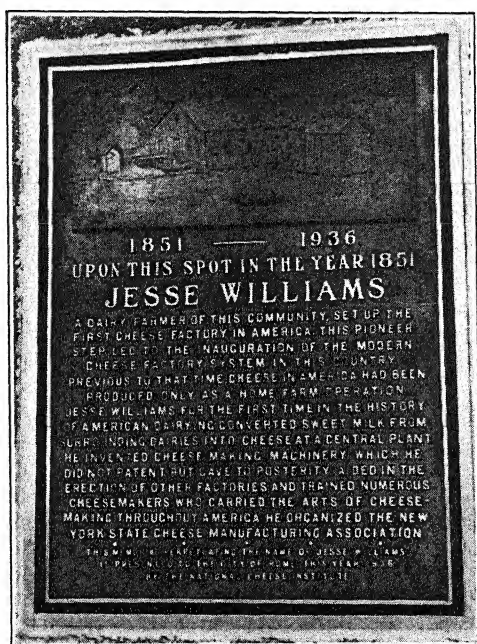 1851 — 1936
UPON THIS SPOT IN THE YEAR 1851
JESSE WILLIAMS
A DAIRY FARMER OF THIS COMMUNITY, SET UP THE
FIRST CHEESE FACTORY IN AMERICA. THIS PIONEER
STEP LED TO THE INAUGURATION OF THE MODERN
CHEESE FACTORY SYSTEM IN THIS COUNTRY.
PREVIOUS TO THAT TIME CHEESE IN AMERICA HAD BEEN
PRODUCED ONLY AS A HOME FARM OPERATION.
JESSE WILLIAMS FOR THE FIRST TIME IN THE HISTORY
OF AMERICAN DAIRYING CONVERTED SWEET MILK FROM
SURROUNDING DAIRIES INTO CHEESE AT A CENTRAL PLANT
HE INVENTED CHEESE MAKING MACHINERY WHICH HE
DID NOT PATENT BUT GAVE TO POSTERITY, AIDED IN THE
ERECTION OF OTHER FACTORIES AND TRAINED NUMEROUS
CHEESEMAKERS WHO CARRIED THE ARTS OF CHEESE-
MAKING THROUGHOUT AMERICA. HE ORGANIZED THE NEW
YORK STATE CHEESE MANUFACTURING ASSOCIATION
THIS MEMORIAL PERPETUATING THE NAME OF JESSE WILLIAMS
IS PRESENTED TO THE CITY OF ROME THIS YEAR 1936
BY THE NATIONAL CHEESE INSTITUTE